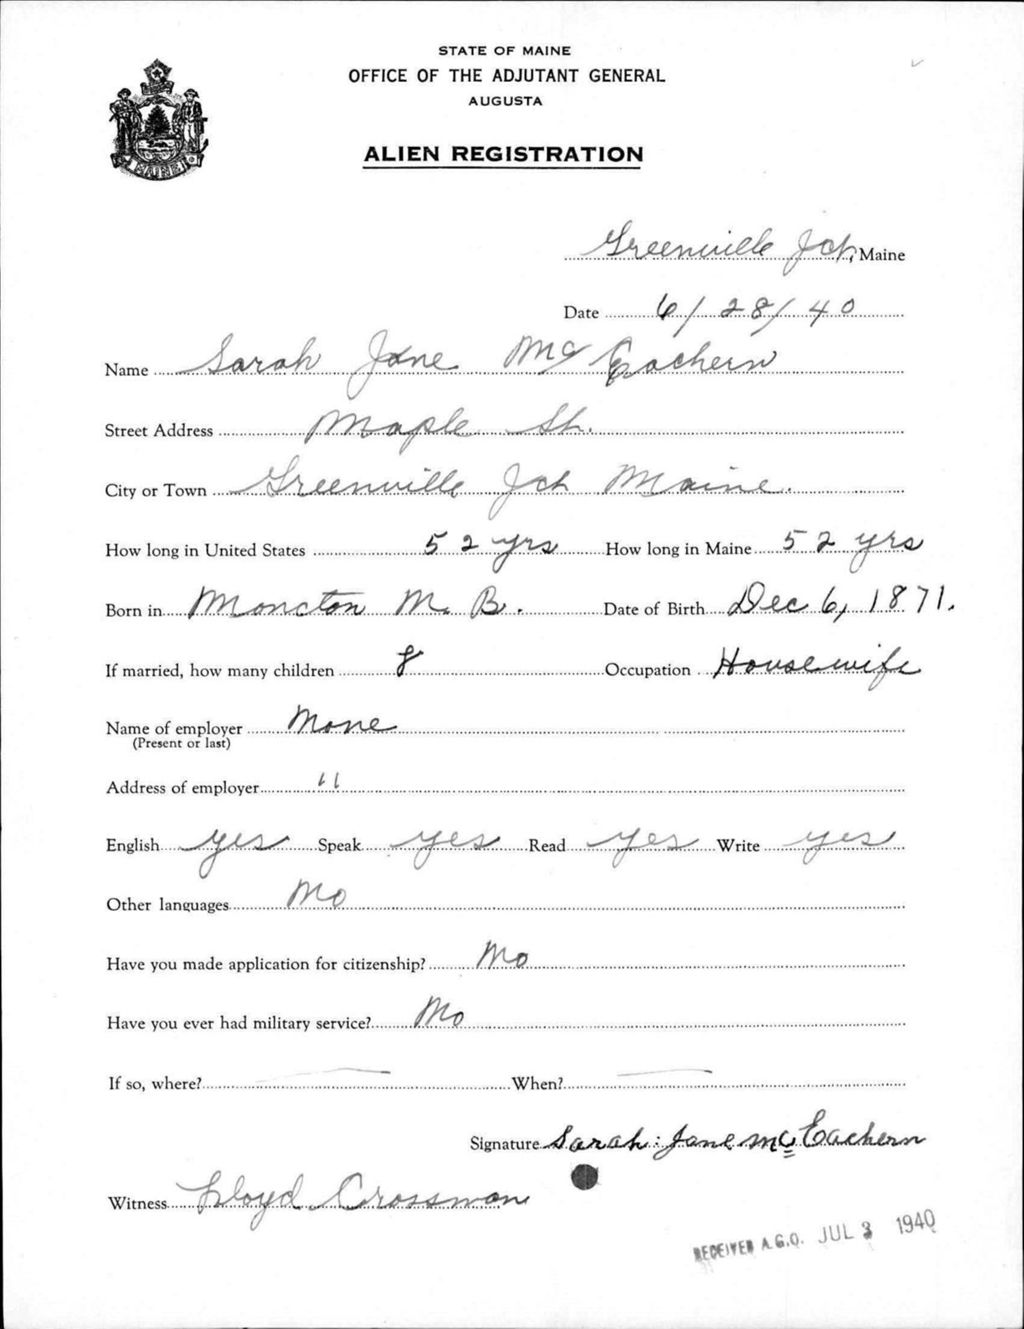 STATE OF MAINE
OFFICE OF THE ADJUTANT GENERAL
AUGUSTA
ALIEN REGISTRATION
MAINE
Greenville Jct, Maine
Date 6/28/40
Name Sarah Jane McEachern
Street Address Maple St.
City or Town Greenville Jct Maine.
How long in United States 52 yrs How long in Maine 52 yrs
Born in Moncton N. B. Date of Birth Dec 6, 1871.
If married, how many children 8 Occupation Housewife
Name of employer None
(Present or last)
Address of employer "
English yes Speak yes Read yes Write yes
Other languages No
Have you made application for citizenship? No
Have you ever had military service? No
If so, where? — When? —
Signature Sarah Jane McEachern
Witness Lloyd Crossman
RECEIVED A.G.O. JUL 3 1940